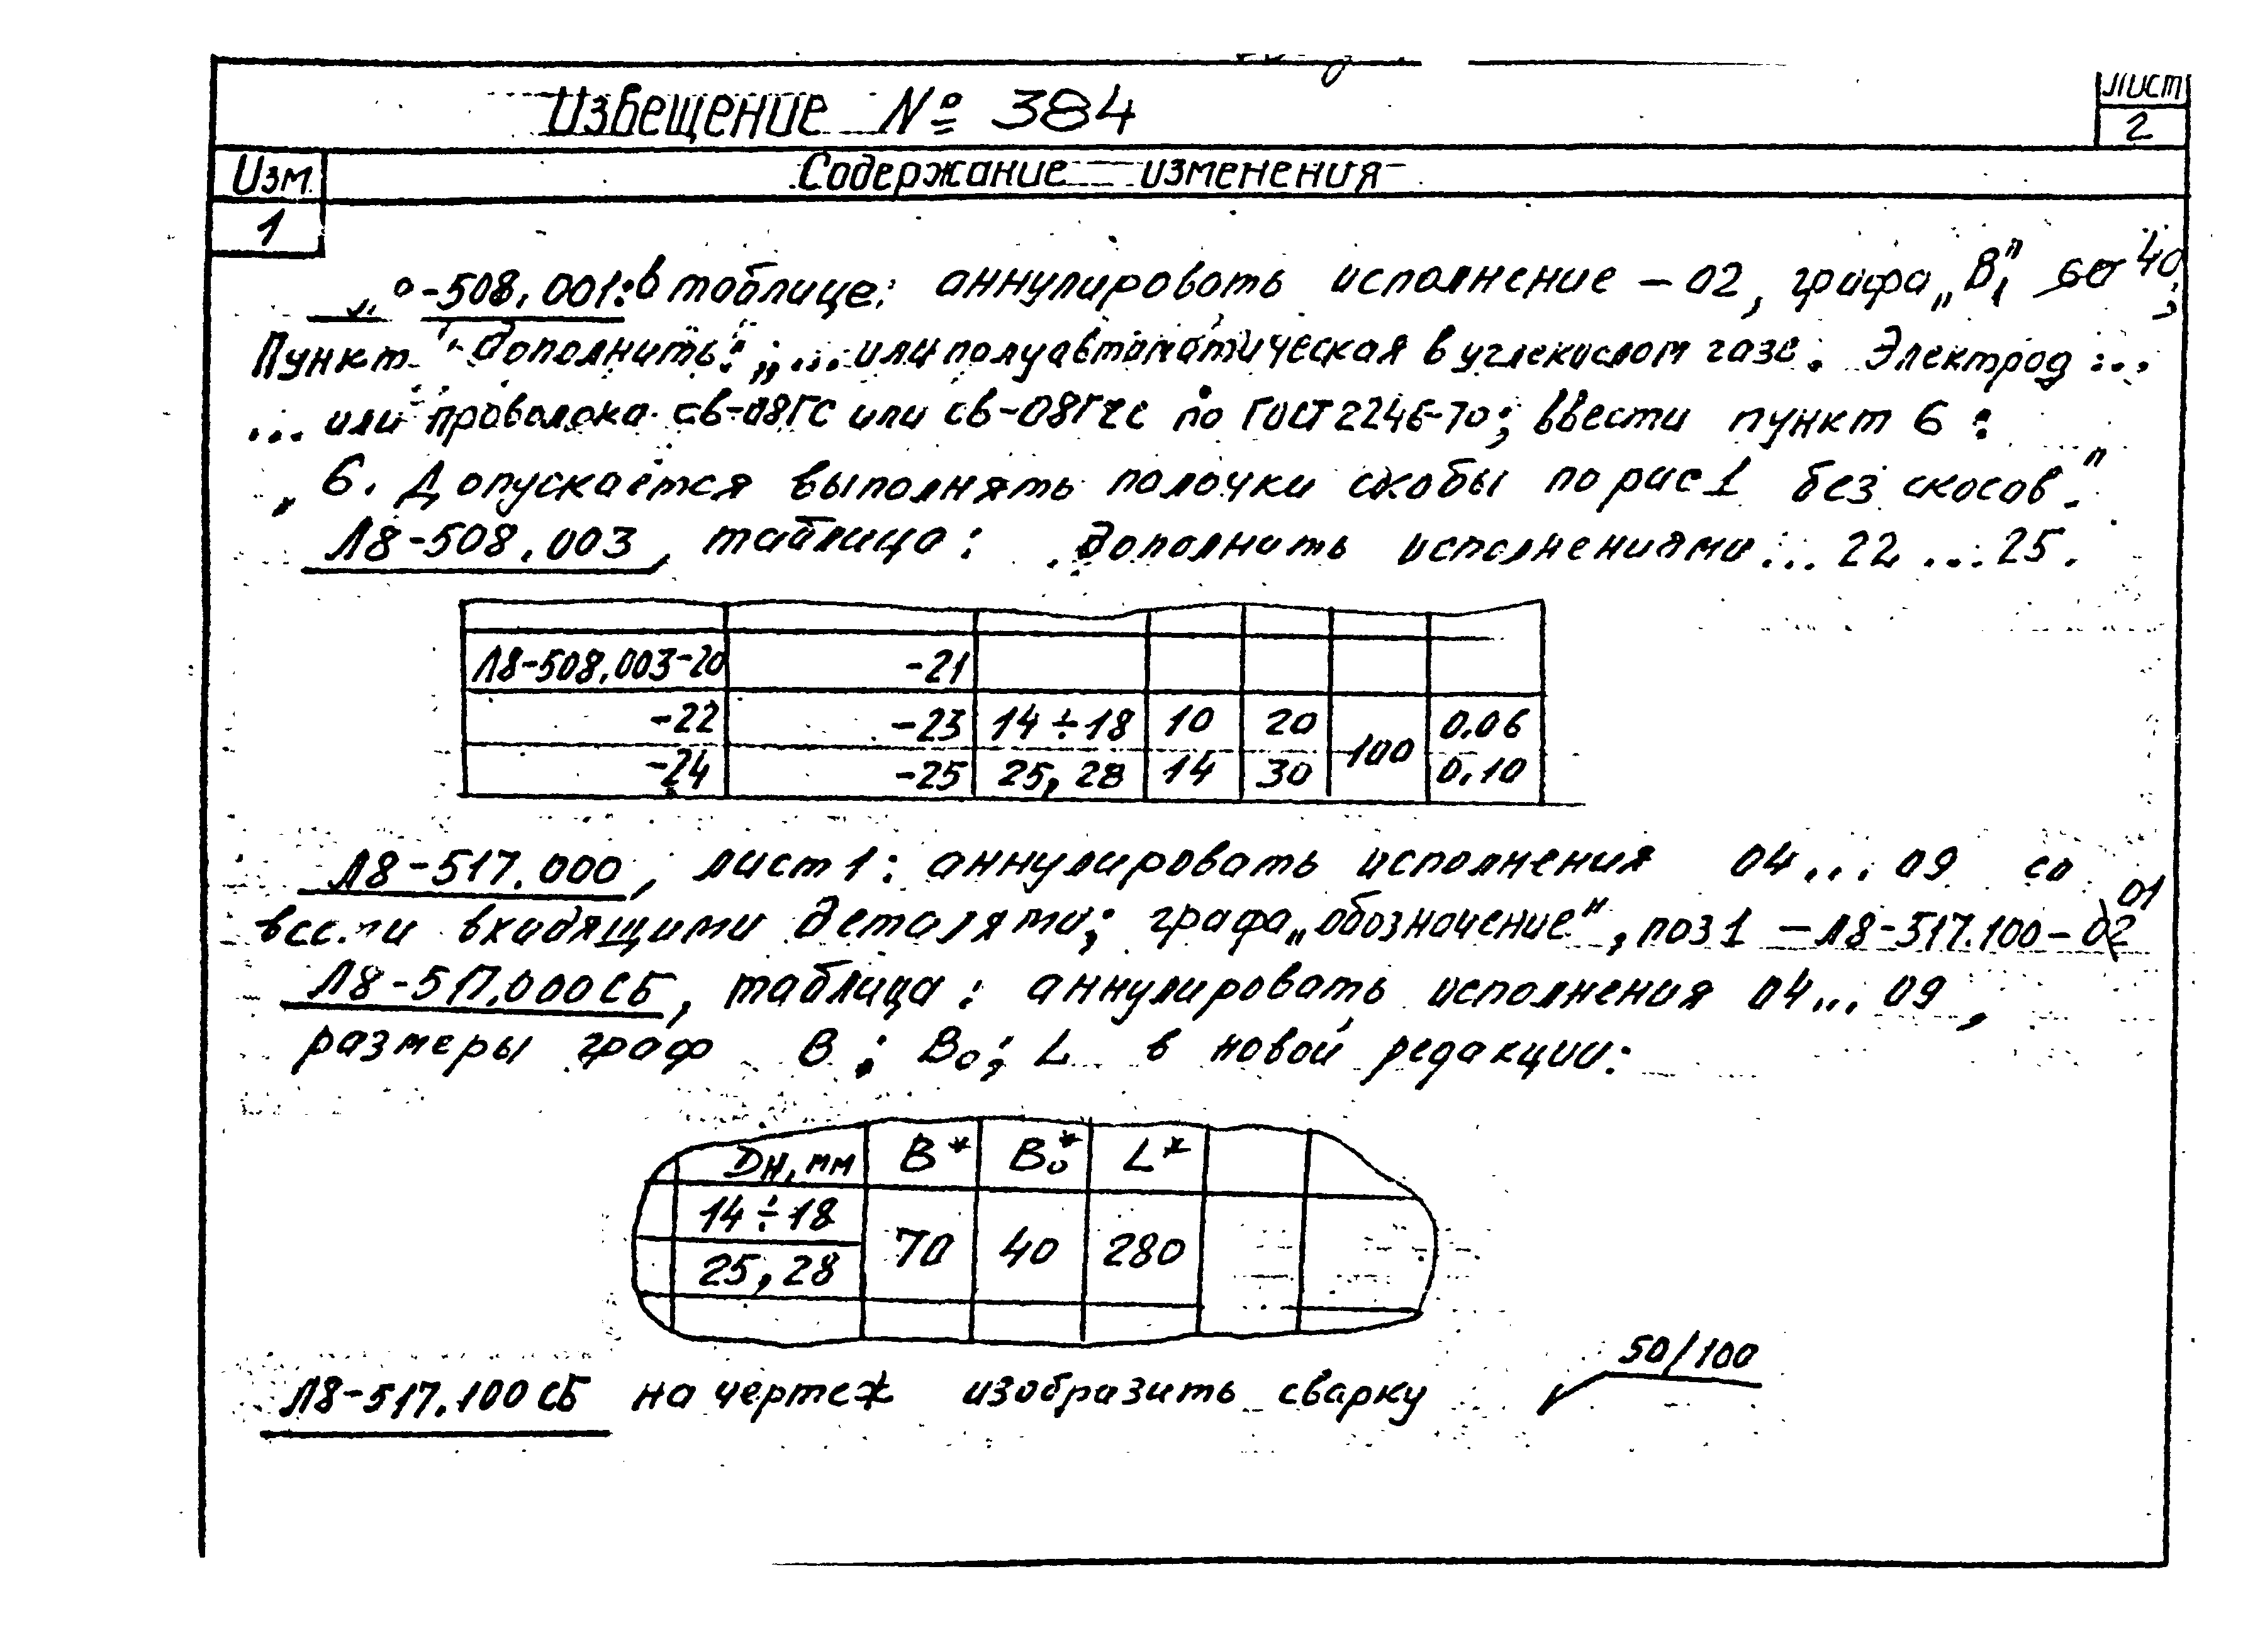 Извещение № 384
Лист
2
Изм.
Содержание изменения
1
-508.001: в таблице: аннулировать исполнение -02, графа „В₁" 60 40;
Пункт дополнить: „... или полуавтоматическая в углекислом газе. Электрод ...
... или проволока св-08ГС или св-08Г2С по ГОСТ 2246-70; ввести пункт 6:
„6. Допускается выполнять полочки скобы по рис 1 без скосов."
Л8-508.003, таблица: дополнить исполнениями ... 22 ... 25.
Л8-508.003-20 -21
-22 -23 14÷18 10 20 100 0.06
-24 -25 25, 28 14 30 0.10
Л8-517.000, лист 1: аннулировать исполнения 04... 09 со
всеми входящими деталями; графа „обозначение", поз 1 – Л8-517.100-02 01
Л8-517.000 СБ, таблица: аннулировать исполнения 04... 09,
размеры граф В; В₀; L в новой редакции:
Dн, мм В* В₀* L*
14÷18 70 40 280
25, 28
Л8-517.100 СБ на чертеж изобразить сварку 50/100